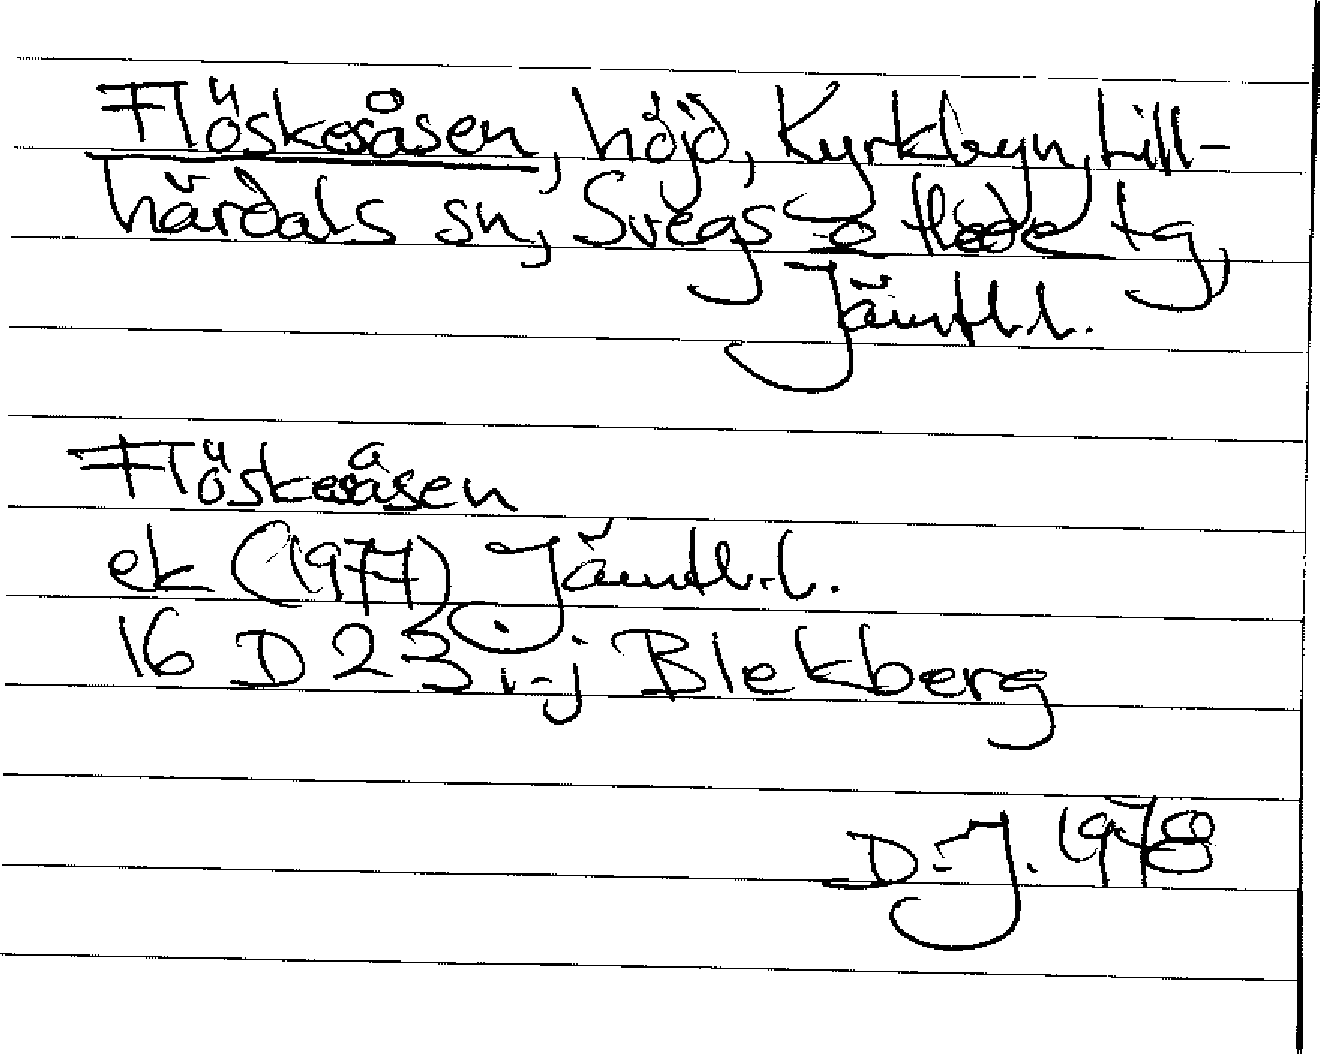 Flöskesåsen, höjd, Kyrkbyn, Lill-
härdals sn, Svegs o Hede tg,
Jämtl.l.
Flöskesåsen
ek (1977) Jämtl.l.
16 D 23 i-j Blekberg
D.J. 1978